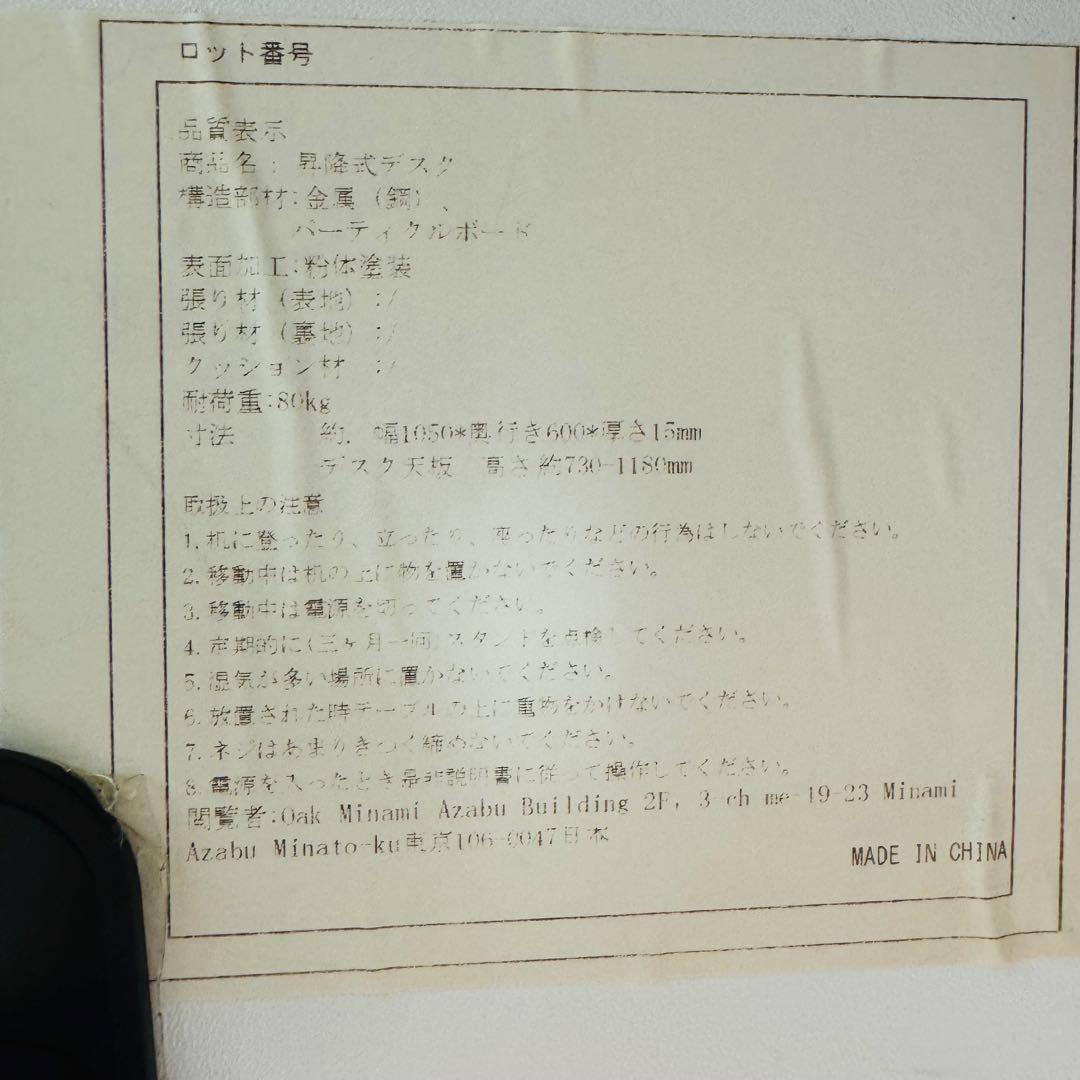 ロット番号
品質表示
商品名：昇降式デスク
構造部材:金属（鋼）、
パーティクルボード
表面加工:粉体塗装
張り材（表地）:/
張り材（裏地）:/
クッション材 :/
耐荷重:80kg
寸法 約. 幅1050*奥行き600*厚さ15mm
デスク天板 高さ約730-1180mm
取扱上の注意
1.机に登ったり、立ったり、座ったりなどの行為はしないでください。
2.移動中は机の上に物を置かないでください。
3.移動中は電源を切ってください。
4.定期的に(三ヶ月一回)スタンドを点検してください。
5.湿気が多い場所に置かないでください。
6.放置された時テーブルの上に重物をかけないでください。
7.ネジはあまりきつく締めないでください。
8.電源を入ったとき是非説明書に従って操作してください。
閲覧者:Oak Minami Azabu Building 2F, 3-ch me-19-23 Minami
Azabu Minato-ku東京106-0047日本
MADE IN CHINA